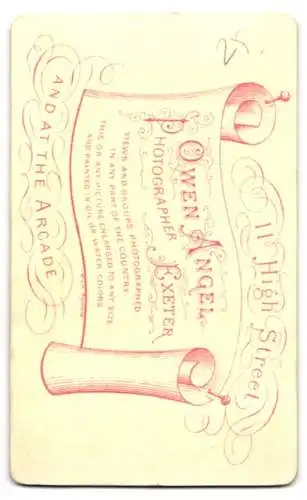 11 High Street,
OWEN ANGEL
PHOTOGRAPHER EXETER
VIEWS AND GROUPS PHOTOGRAPHED
IN ANY PART OF THE COUNTRY
THIS OR ANY PICTURE ENLARGED TO ANY SIZE
AND PAINTED IN OIL OR WATER COLORS
AND AT THE ARCADE